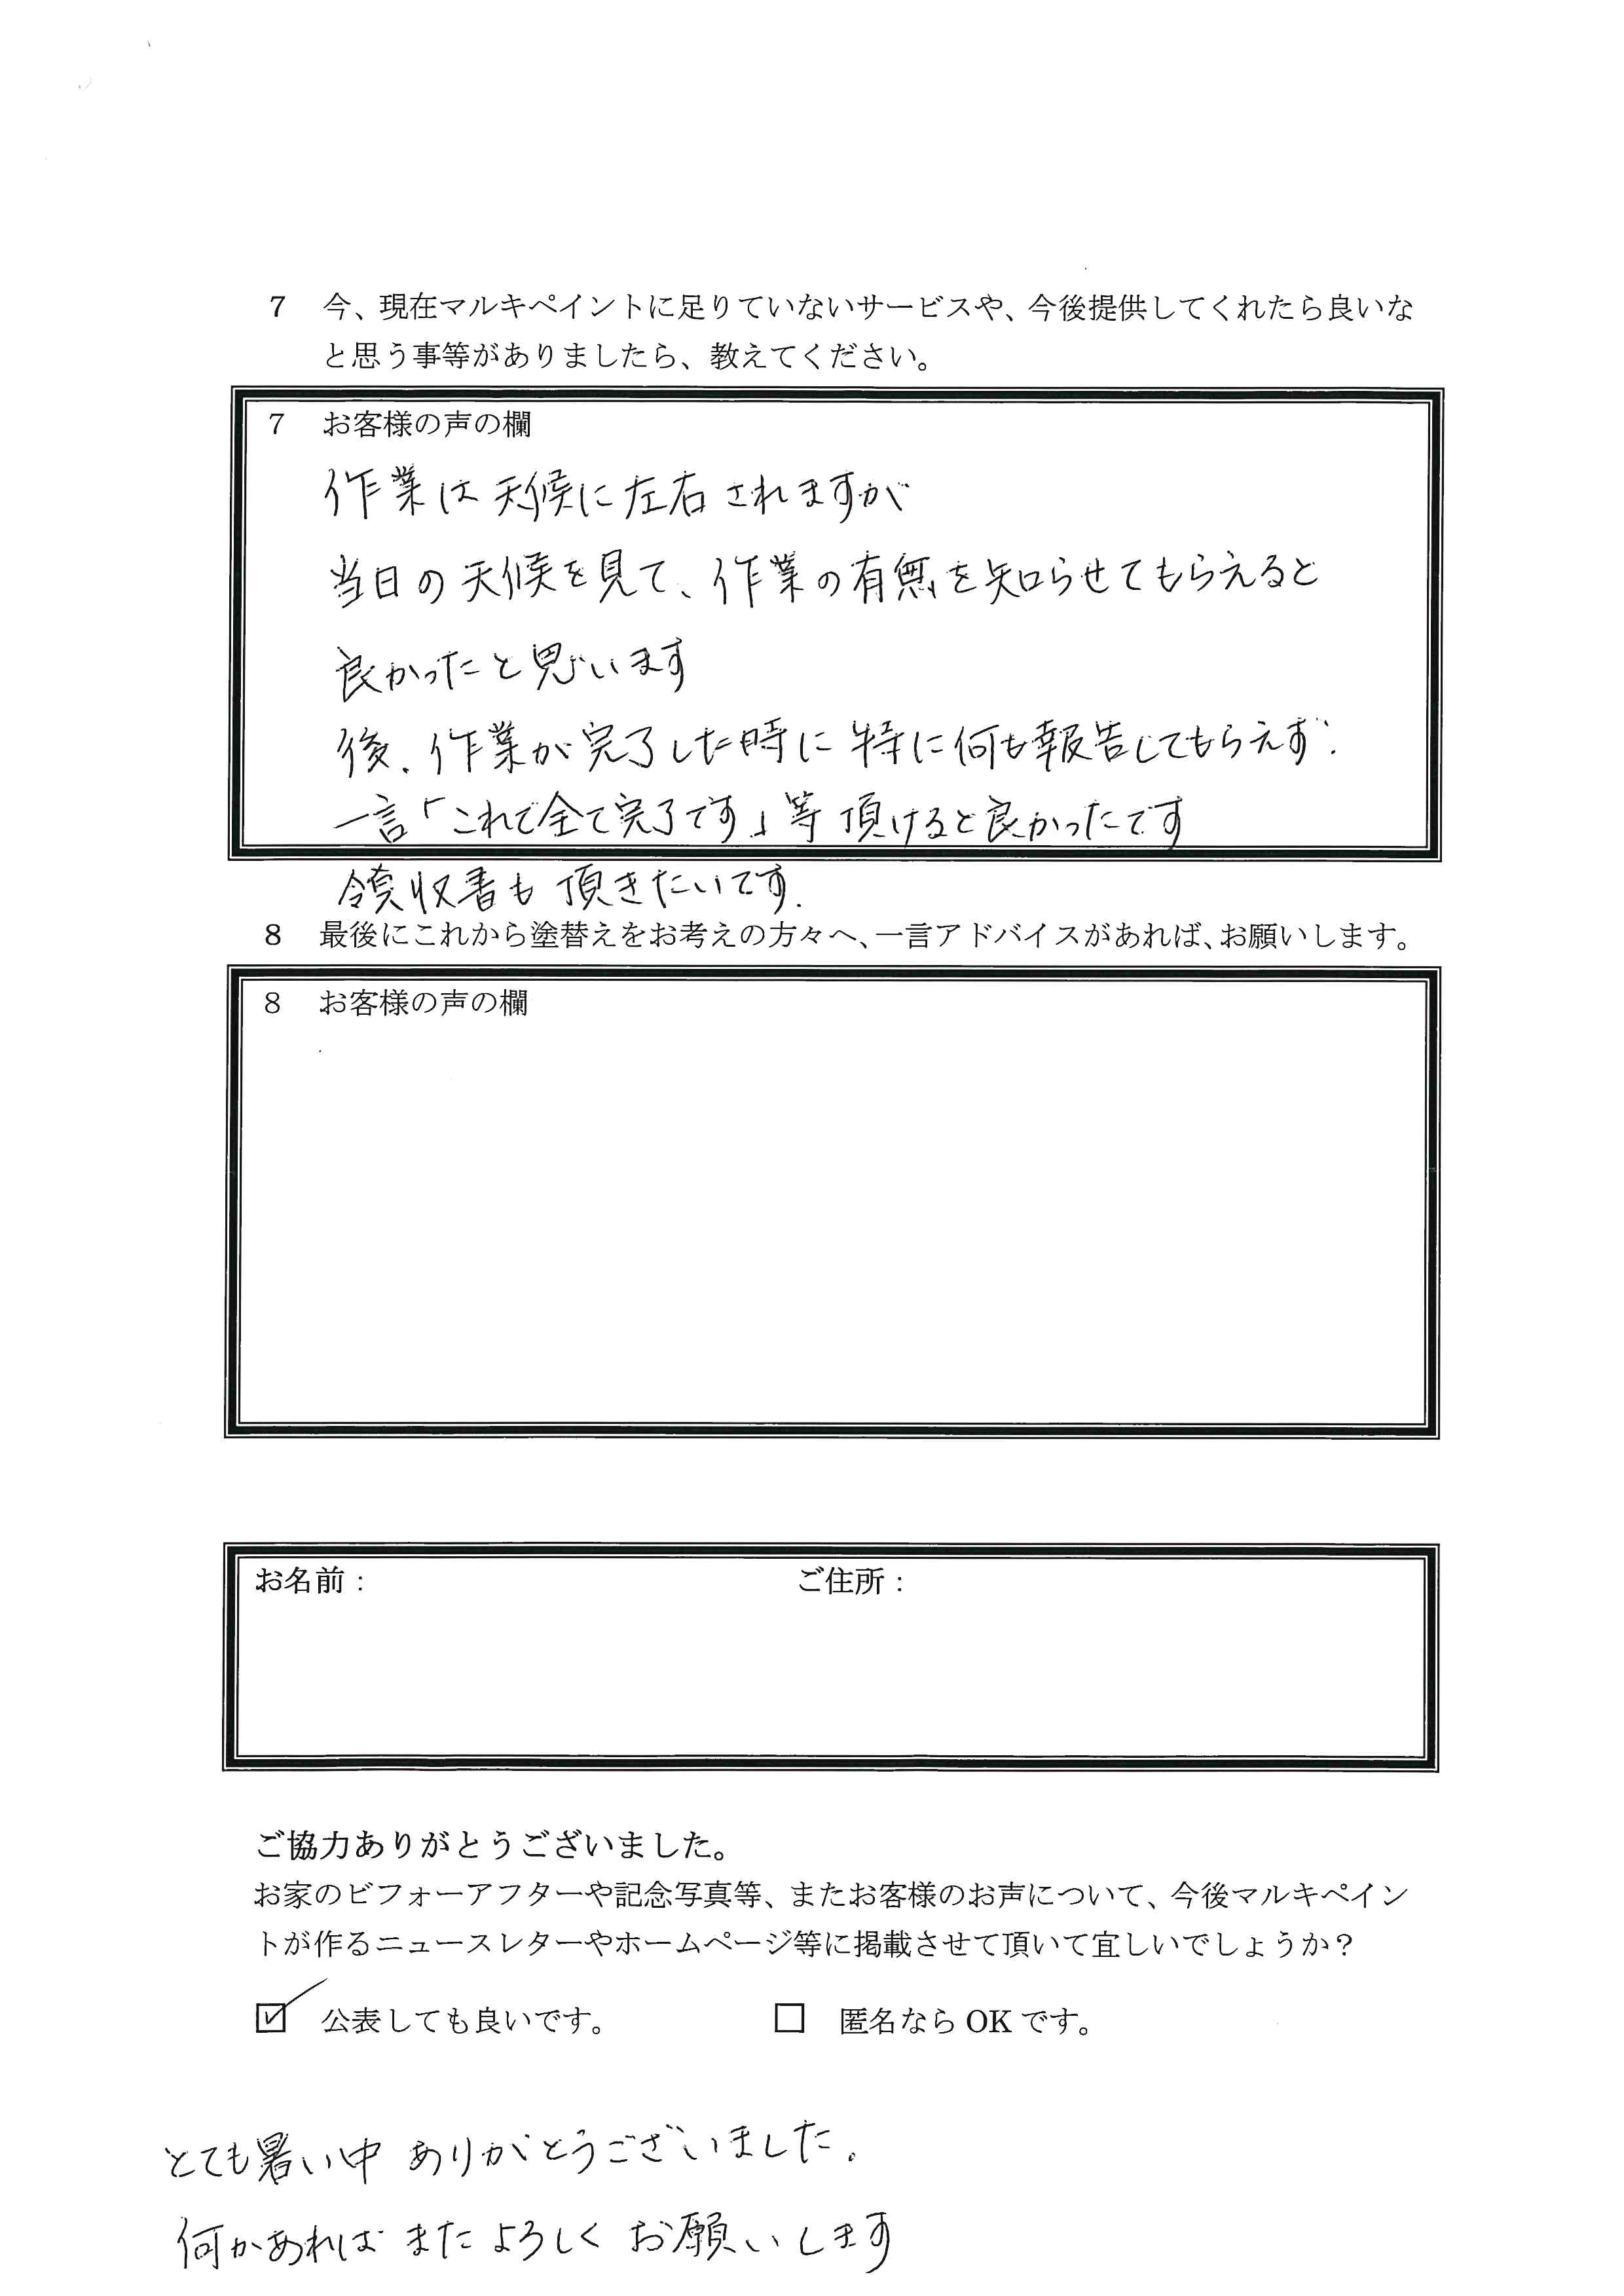 7 今、現在マルキペイントに足りていないサービスや、今後提供してくれたら良いな
と思う事等がありましたら、教えてください。
7 お客様の声の欄
作業は天候に左右されますが
当日の天候を見て、作業の有無を知らせてもらえると
良かったと思います
後、作業が完了した時に特に何も報告してもらえず、
一言「これで全て完了です」等頂けると良かったです
領収書も頂きたいです.
8 最後にこれから塗替えをお考えの方々へ、一言アドバイスがあれば、お願いします。
8 お客様の声の欄
お名前： ご住所：
ご協力ありがとうございました。
お家のビフォーアフターや記念写真等、またお客様のお声について、今後マルキペイン
トが作るニュースレターやホームページ等に掲載させて頂いて宜しいでしょうか？
☑ 公表しても良いです。 □ 匿名なら OK です。
とても暑い中 ありがとうございました。
何かあれば またよろしく お願いします